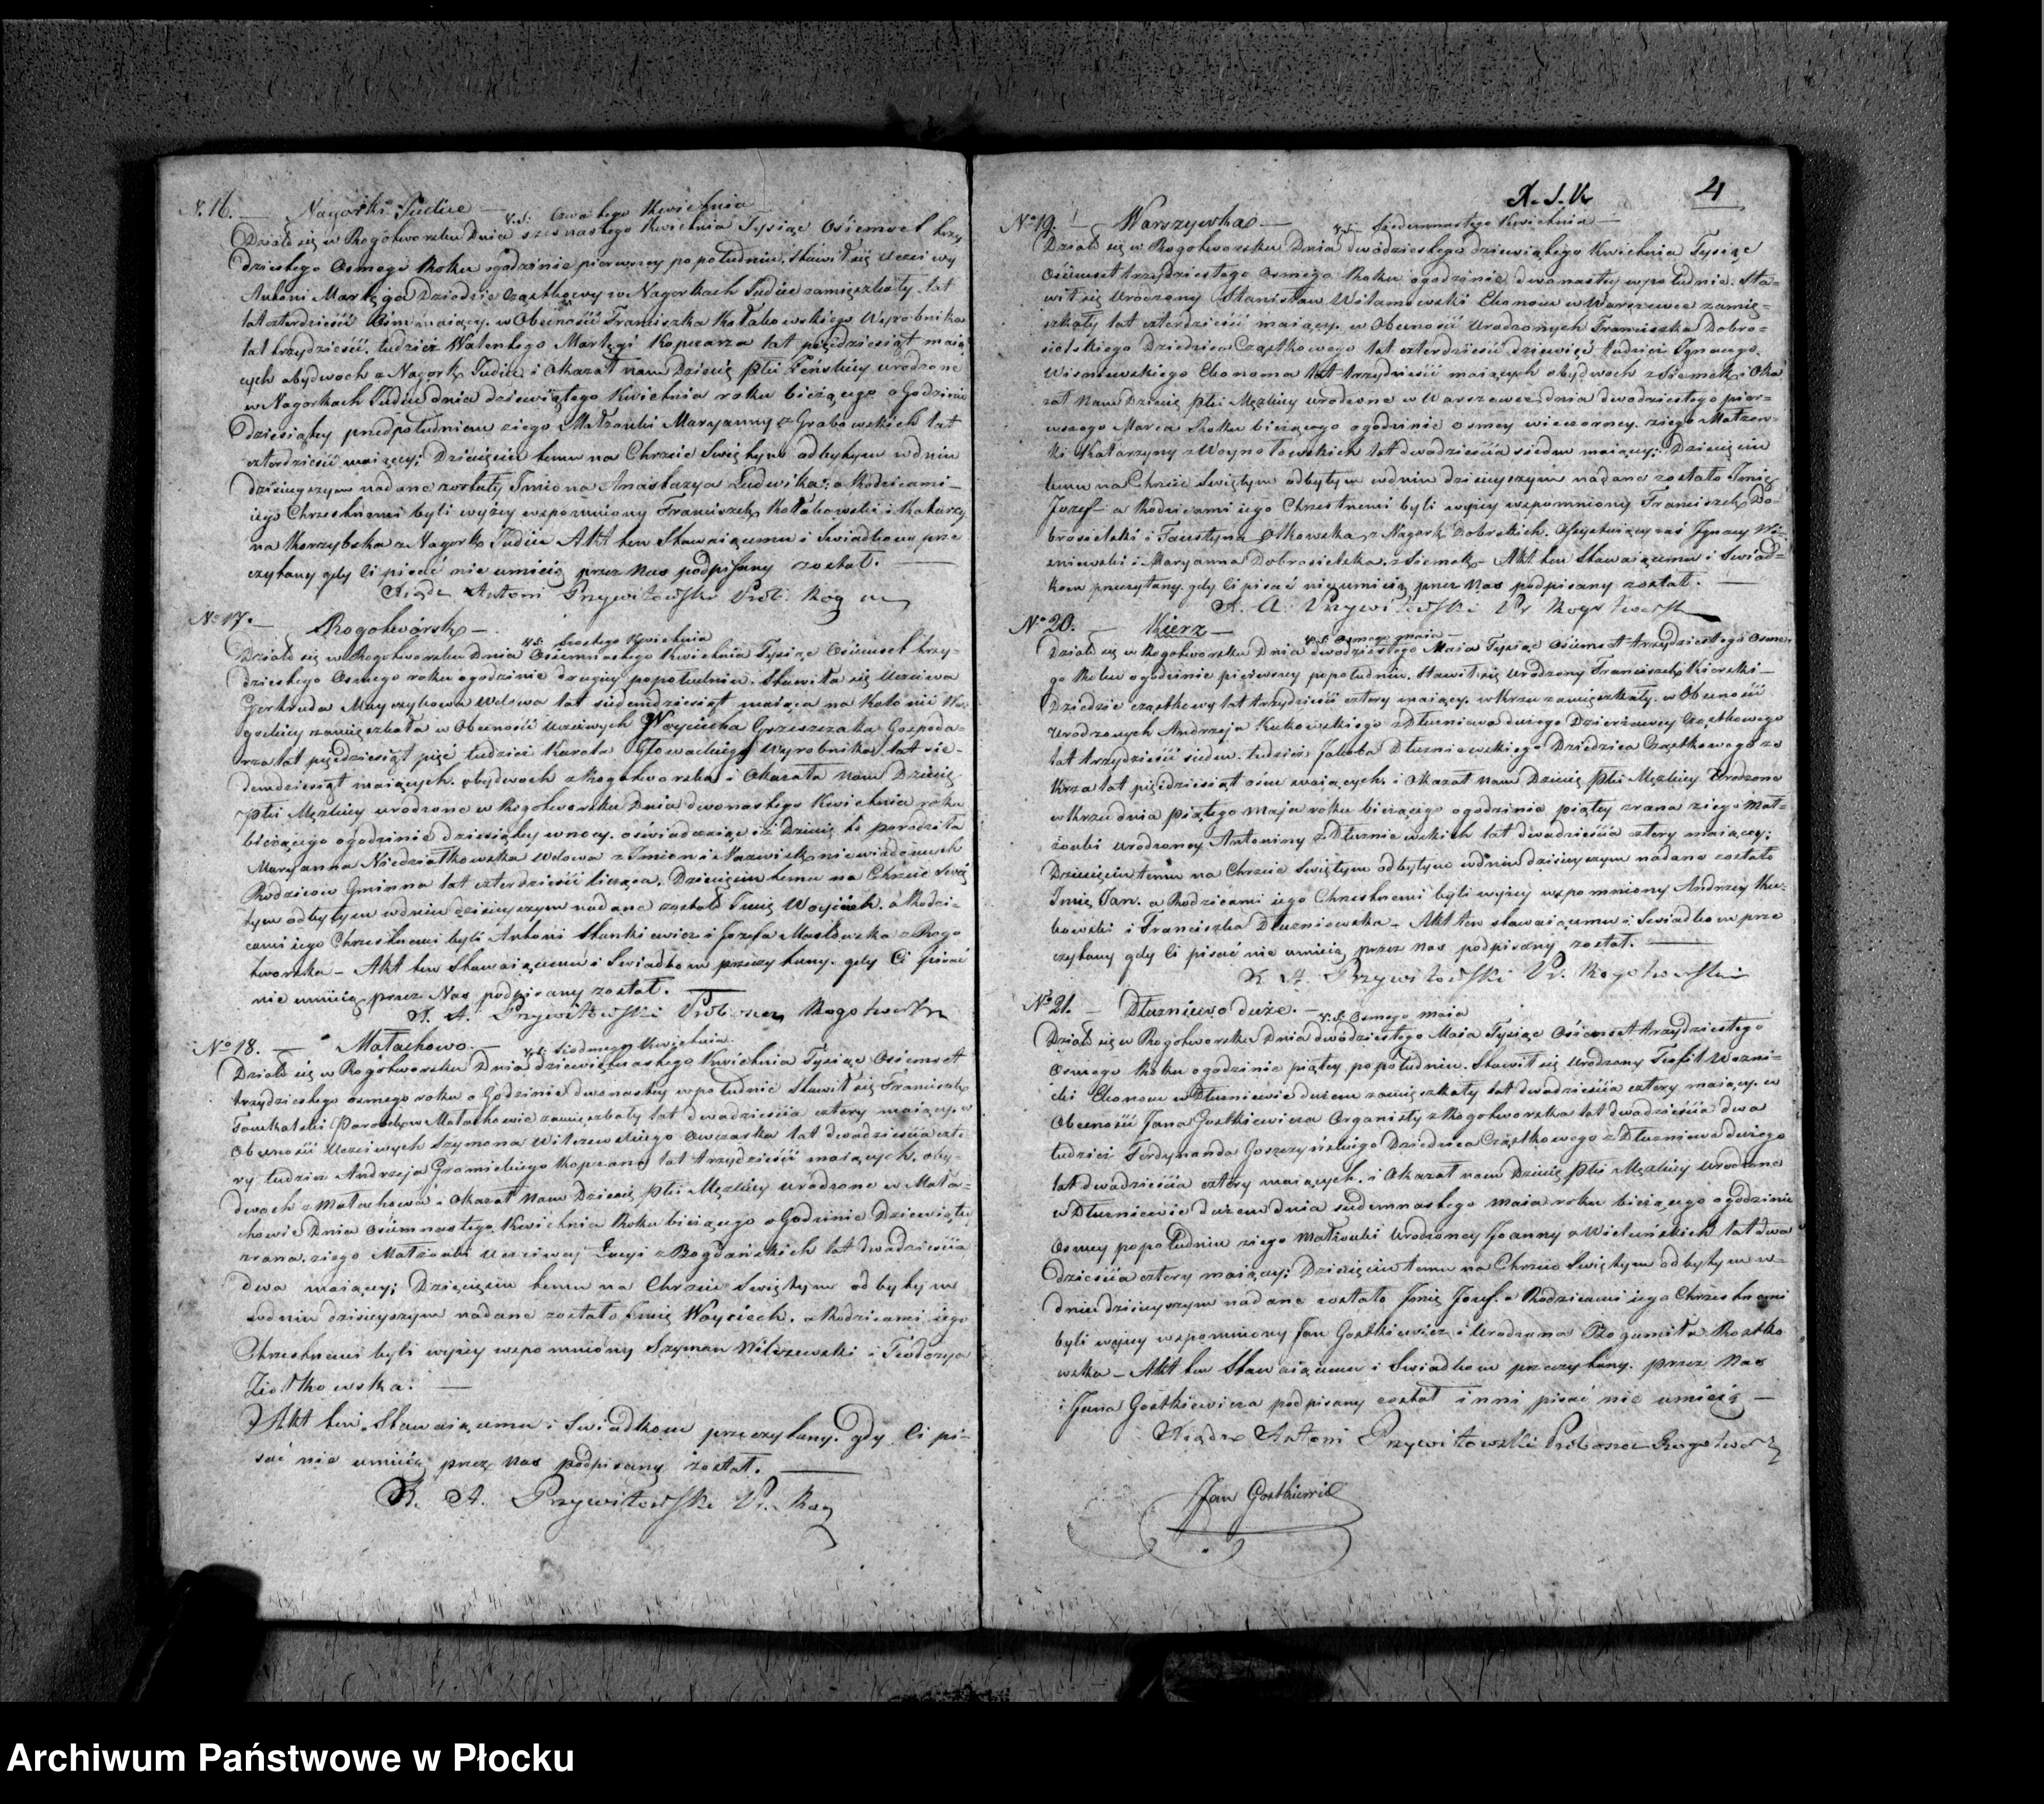 N. 16. — Nagorki Judice —
v. s. czwartego Kwietnia
Działo się w Rogotworsku Dnia szesnastego Kwietnia Tysiąc Osiemset trzy
dziestego Osmego Roku o godzinie pierwszey po południu. Stawił się Uczciwy
Antoni Martęga Dziedzic Cząstkowy w Nagorkach Judice zamięszkały lat
lat czterdzieści Osm maiący. w Obecności Franciszka Kołakowskiego Wyrobnika
lat trzydzieści. tudzież Walentego Martęgi Kopczarza lat pięćdziesiąt maią
cych obydwoch z Nagork Judic i Okazał nam Dziecię płci Żeńskiey urodzone
w Nagorkach Judice dnia dziewiątego Kwietnia roku bieżącego o Godzinie
dziesiątey przed południem z iego Małżonki Maryanny z Grabowskich lat
czterdzieści maiącey; Dziecięciu temu na Chrzcie Swiętym odbytym w dniu
dzisieyszym nadane zostały Imiona Anastazya Ludwika: a Rodzicami
iego Chrzestnemi byli wyżey wspomniony Franciszek Kołakowski i Katarzy
na Korzybska z Nagork Judic Akt ten Stawaiącemu i Swiadkom prze
czytany gdy Ci pisać nie umieią przez Nas podpisany został. —
Xiądz Antoni Przywitowski Prob. Rog
No 17. — Rogotworsk —
v. s. szostego Kwietnia
Działo się w Rogotworsku Dnia Osiemnastego Kwietnia Tysiąc Osiemset trzy-
dziestego Osmego roku o godzinie drugiey po południu. Stawiła się Uczciwa
Gertruda Mayczykowa Wdowa lat siedemdziesiąt maiąca na Kolonii
zamięszkała w Obecności uczciwych Woyciecha Grzeszczaka Gospoda-
rza lat pięćdziesiąt pięć tudzież Karola Głowackiego Wyrobnika lat sie-
demdziesiąt maiących. obydwoch z Rogotworska i Okazała Nam Dziecię
płci Męzkiey urodzone w Rogotworsku Dnia dwonastego Kwietnia roku
bieżącego o godzinie dziesiątey w nocy. oświadczaiąc iż Dziecię to porodziła
Maryanna Niedziałkowska Wdowa z Imion i Nazwisk niewiadomych
Rodzicow Gminna lat czterdzieści licząca. Dziecięciu temu na Chrzcie Swię
tym odbytym w dniu dzisieyszym nadane zostało Imię Woyciech. a Rodzi-
cami iego Chrzestnemi byli Antoni Stankiewicz i Jozefa Masłowska z Rogo
tworska — Akt ten Stawaiącemu i Swiadkom przeczytany. gdy Ci pisać
nie umieią przez Nas podpisany został. —
X. A. Przywitowski Proboszcz Rogotworsk
No 18. — Małachowo. —
v. s. Siodmego Kwietnia
Działo się w Rogotworsku Dnia dziewiętnastego Kwietnia Tysiąc Osiemset
trzydziestego osmego roku o Godzinie dwunastey w południe Stawił się Franciszek
w Małachowie zamięszkały lat dwadzieścia cztery maiący. w
Obecności Uczciwych Szymona Wilczewskiego Owczarka lat dwadzieścia czte
ry tudzież Andrzeja Gramickiego Kopczarza lat trzydzieści maiących. oby-
dwoch z Małachowa i Okazał Nam Dziecię płci Męzkiey urodzone w Mała-
chowie Dnia Osiemnastego Kwietnia Roku bieżącego o Godzinie Dziewiątey
zrana. z iego Małżonki Uczciwey Łucyi z Bogdańskich lat dwadzieścia
dwa maiącey; Dziecięciu temu na Chrzcie Swiętym odbytym
w dniu dzisieyszym nadane zostało Imię Woyciech. a Rodzicami iego
Chrzestnemi byli wyżey wspomniony Szyman Wilczewski i Teodozya
Ziołkowska. —
Akt ten Stawaiącemu i Swiadkom przeczytany. gdy Ci pi-
sać nie umieią przez Nas podpisany został. —
X. A. Przywitowski Pr. Rog
X. S. K.
4
No 19. — Warszywka —
v. s. Siedemnastego Kwietnia —
Działo się w Rogotworsku Dnia dwudziestego dziewiątego Kwietnia Tysiąc
Osiemset trzydziestego Osmego Roku o godzinie dwonastey w południe. Sta-
wił się Urodzony Stanisław Witamowski Ekonom w Warszewce zamię-
szkały lat czterdzieści maiący. w Obecności Urodzonych Franciszka Dobro-
sielskiego Dziedzica Cząstkowego lat czterdzieści dziewięć tudzież Ignacego
Wisniewskiego Ekonoma lat trzydzieści maiących obydwoch z Siemek i Oka
zał Nam Dziecię płci Męzkiey urodzone w Warszewce dnia dwudziestego pier-
wszego Marca Roku bieżącego o godzinie osmey wieczorney. z iego Małżon-
ki Katarzyny z Woynotowskich lat dwadzieścia siedm maiącey; Dziecięciu
temu na Chrzcie Swiętym odbytym w dniu dzisieyszym nadane zostało Imię
Jozef — a Rodzicami iego Chrzestnemi byli wyżey wspomniony Franciszek Do-
brosielski i Faustyna Ołkowska z Nagork Dobrskich. Assystuiący zaś Ignacy Wi-
zniewski i Maryanna Dobrosielska. z Siemek — Akt ten Stawaiącemu i Swiad-
kom przeczytany. gdy Ci pisać nieumieią przez Nas podpisany został. —
X. A. Przywitowski Pr. Rogotworsk
No 20. — Kierz —
v. s. Osmego maia —
Działo się w Rogotworsku Dnia dwodziestego Maia Tysiąc Osiemset trzydziestego Osme
go Roku o godzinie pierwszey po południu. Stawił się Urodzony Franciszek Kierski —
Dziedzic cząstkowy lat trzydzieści cztery maiący. w Krzu zamięszkały. w Obecności
Urodzonych Andrzeja Kukowskiego z Dłuzniewa dużego Dzierżawcy Cząstkowego
lat trzydzieści siedm. tudzież Jakoba Dłuzniewskiego Dziedzica Cząstkowego ze
Krza lat pięćdziesiąt osm maiących. i Okazał nam Dziecię płci Męzkiey Urodzone
w Krzu dnia piątego Maja roku bieżącego o godzinie piątey zrana z iego Mał-
żonki Urodzoney Antoniny z Dłuzniewskich lat dwadzieścia cztery maiącey;
Dziecięciu temu na Chrzcie Swiętym odbytym w dniu dzisieyszym nadane zostało
Imię Jan. a Rodzicami iego Chrzestnemi byli wyżey wspomniony Andrzey Ku-
kowski i Franciszka Dłuzniewska. Akt ten stawaiącemu i Swiadkom prze
czytany gdy Ci pisać nie umieią przez Nas podpisany został. —
X. A. Przywitowski Pr. Rogotworski
No 21. — Dłuzniewo duże. —
v. s. Osmego maia
Działo się w Rogotworsku Dnia dwudziestego Maia Tysiąc Osiemset trzydziestego
Osmego Roku o godzinie piątey po południu. Stawił się Urodzony Teofil Wozni-
cki Ekonom w Dłuzniewie dużem zamięszkały lat dwadzieścia cztery maiący. w
Obecności Jana Gostkiewicza Organisty z Rogotworska lat dwadzieścia dwa
tudzież Ferdynanda Goszczyńskiego Dziedzica Cząstkowego z Dłuzniewa dużego
lat dwadzieścia cztery maiących. i Okazał nam Dziecię płci Męzkiey urodzone
w Dłuzniewie dużem dnia siedemnastego Maia roku bieżącego o godzinie
Osmey po południu z iego Małżonki Urodzoney Joanny z Wieluńskich lat dwa
dzieścia cztery maiącey; Dziecięciu temu na Chrzcie Swiętym odbytym w-
dniu dzisieyszym nadane zostało Imię Jozef. a Rodzicami iego Chrzestnemi
byli wyżey wspomniony Jan Gostkiewicz i Urodzona Bogumiła Rostko
wska — Akt ten Stawaiącemu i Swiadkom przeczytany. przez Nas
i Jana Gostkiewicza podpisany został inni pisać nie umieią —
Xiądz Antoni Przywitowski Proboszcz Rogotworsk
Jan Gostkiewicz
Archiwum Państwowe w Płocku